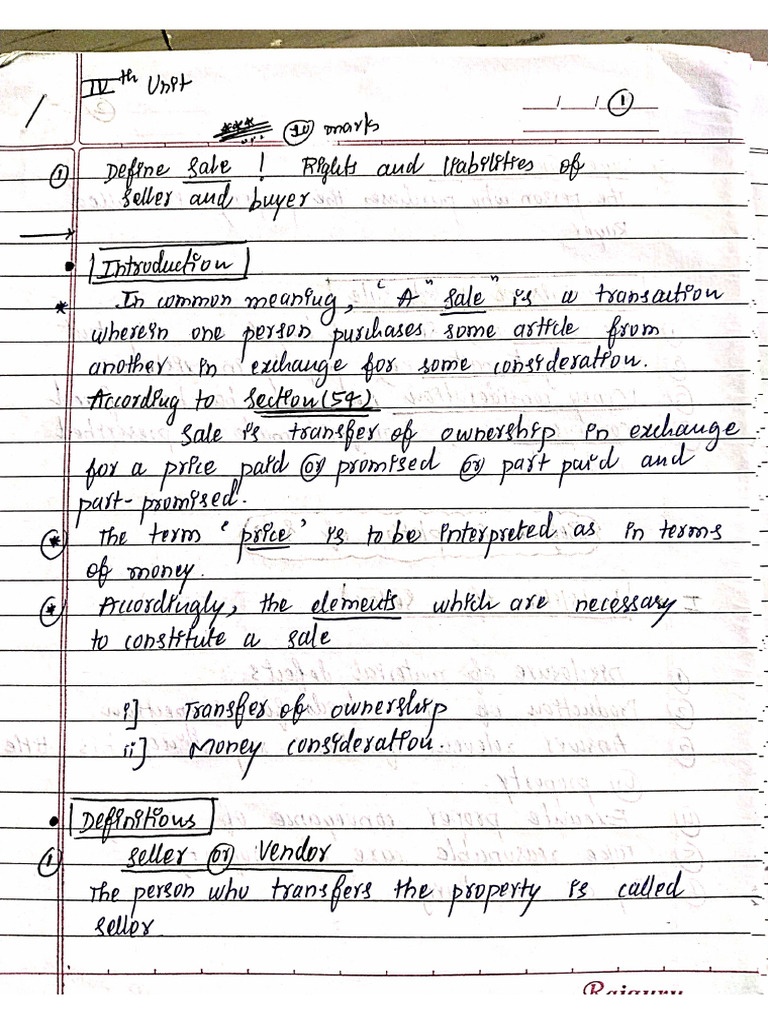 IVth Unit
1
*** 10 marks
① Define sale ! Rights and liabilities of
seller and buyer
→
• Introduction
* In common meaning, ‘ A " sale " is a transaction
wherein one person purchases some article from
another in exchange for some consideration.
According to section (54)
Sale is transfer of ownership in exchange
for a price paid or promised or part paid and
part-promised.
* The term ‘ price ’ is to be interpreted as in terms
of money.
* Accordingly, the elements which are necessary
to constitute a sale
i] Transfer of ownership
ii] Money consideration.
• Definitions
① seller or Vendor
The person who transfers the property is called
seller
Rajguru